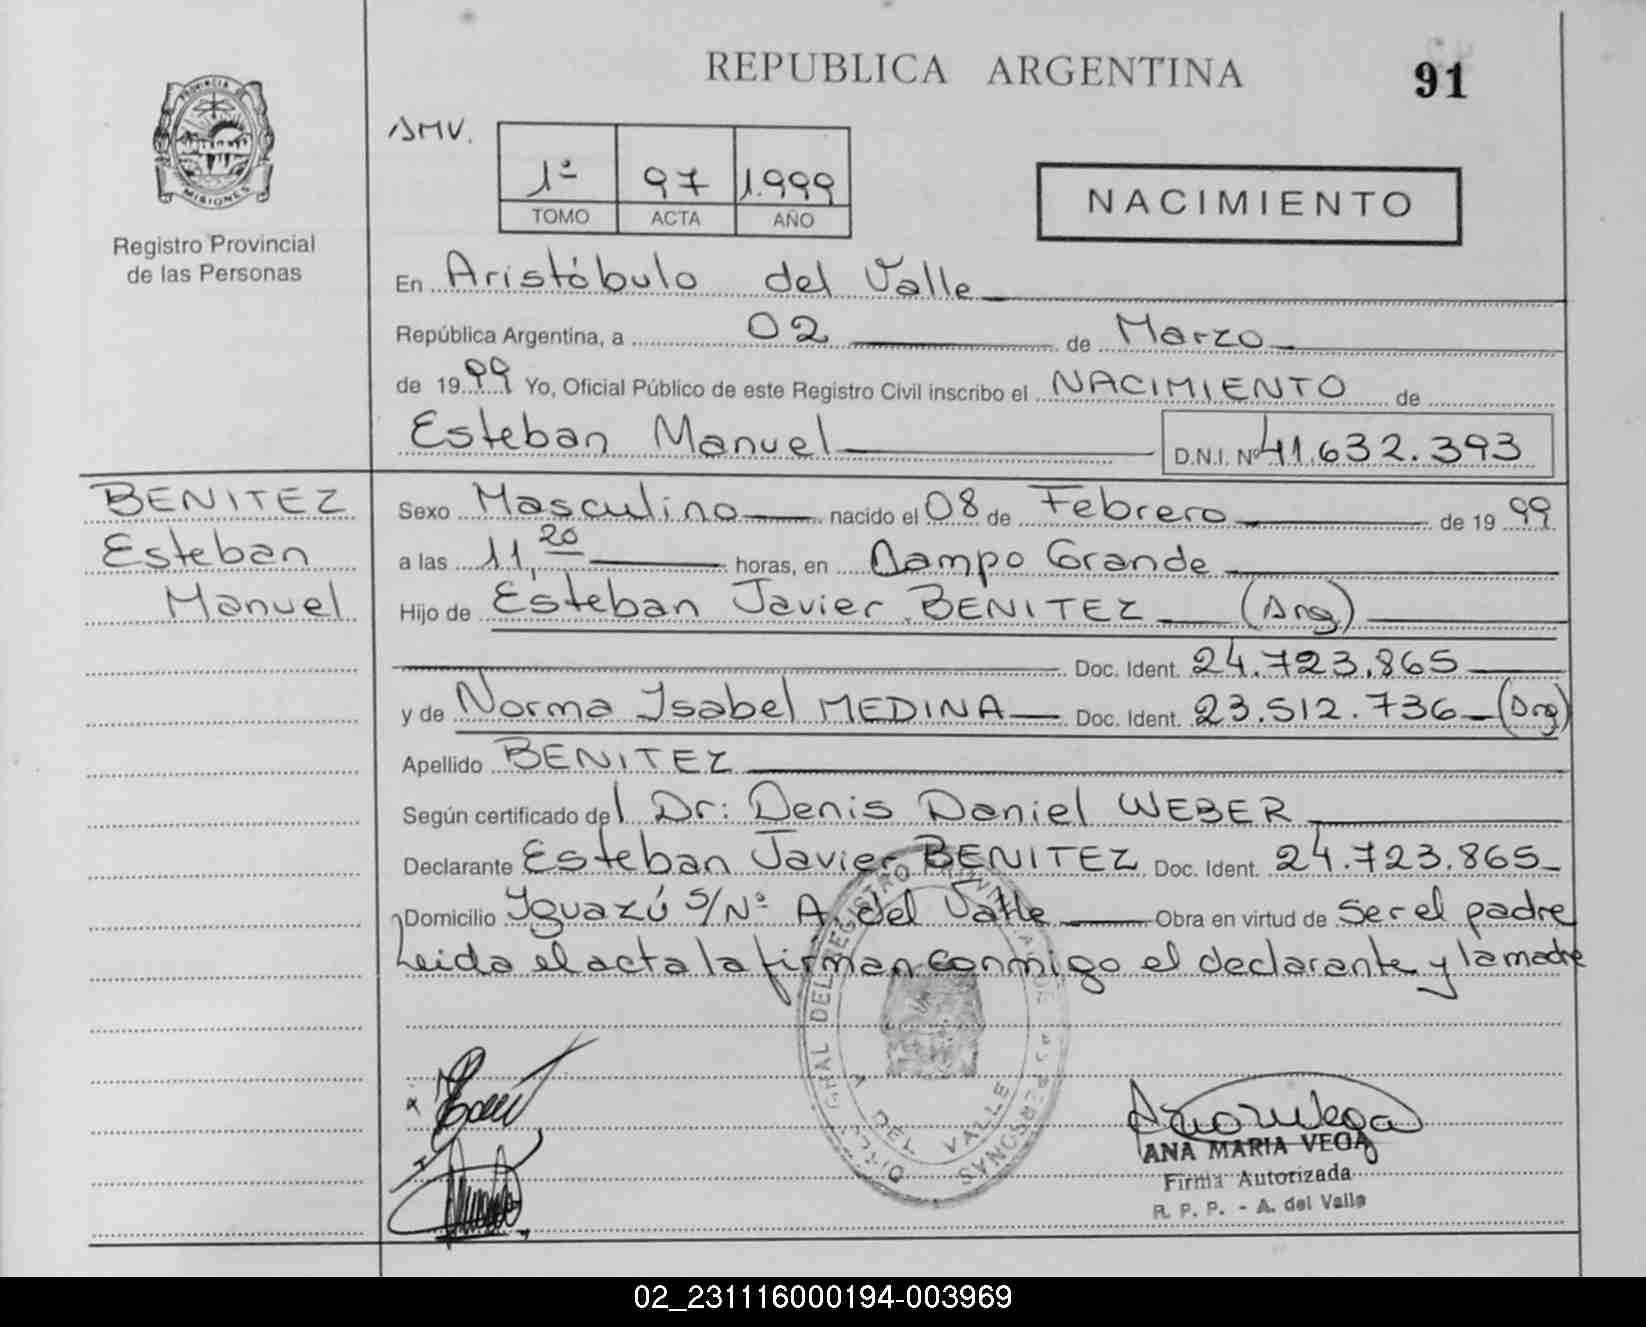 REPUBLICA ARGENTINA
91
PROVINCIA DE
MISIONES
Registro Provincial
de las Personas
SMV.
1º 97 1.999
TOMO ACTA AÑO
NACIMIENTO
En Aristóbulo del Valle
República Argentina, a 02 de Marzo
de 1999 Yo, Oficial Público de este Registro Civil inscribo el NACIMIENTO de
Esteban Manuel D.N.I. Nº 41.632.393
BENITEZ
Esteban
Manuel
Sexo Masculino nacido el 08 de Febrero de 1999
a las 11,20 horas, en Campo Grande
Hijo de Esteban Javier BENITEZ (Arg)
Doc. Ident. 24.723.865
y de Norma Isabel MEDINA Doc. Ident. 23.512.736 (Arg)
Apellido BENITEZ
Según certificado del Dr: Denis Daniel WEBER
Declarante Esteban Javier BENITEZ Doc. Ident. 24.723.865
Domicilio Iguazú S/Nº A. del Valle Obra en virtud de ser el padre
Leida el acta la firman conmigo el declarante y la madre
A DEL VALLE
ANA MARIA VEGA
Firma Autorizada
R. P. P. - A. del Valle
02_231116000194-003969